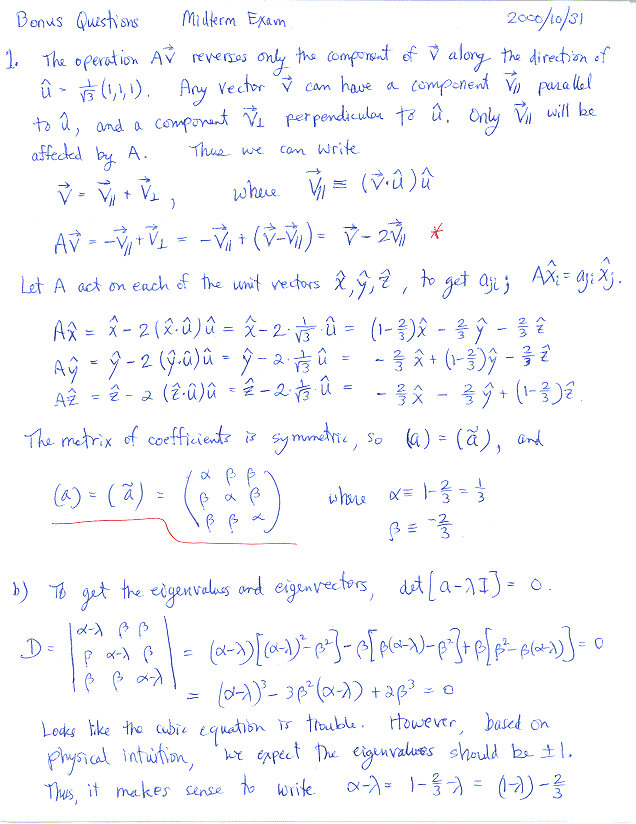 Bonus Questions Midterm Exam 2000/10/31
1. The operation Av⃗ reverses only the component of v⃗ along the direction of
û = 1/√3 (1,1,1). Any vector v⃗ can have a component v⃗∥ parallel
to û, and a component v⃗⊥ perpendicular to û. Only v⃗∥ will be
affected by A. Thus we can write
v⃗ = v⃗∥ + v⃗⊥, where v⃗∥ ≡ (v⃗·û)û
Av⃗ = -v⃗∥ + v⃗⊥ = -v⃗∥ + (v⃗-v⃗∥) = v⃗ - 2v⃗∥ *
Let A act on each of the unit vectors x̂, ŷ, ẑ, to get aji; Ax̂i = aji x̂j.
Ax̂ = x̂ - 2(x̂·û)û = x̂ - 2·1/√3 û = (1-2/3)x̂ - 2/3 ŷ - 2/3 ẑ
Aŷ = ŷ - 2(ŷ·û)û = ŷ - 2·1/√3 û = - 2/3 x̂ + (1-2/3)ŷ - 2/3 ẑ
Aẑ = ẑ - 2(ẑ·û)û = ẑ - 2·1/√3 û = - 2/3 x̂ - 2/3 ŷ + (1-2/3)ẑ.
The matrix of coefficients is symmetric, so (a) = (ã), and
(a) = (ã) = ( α β β where α ≡ 1-2/3 = 1/3
β α β
β β α ) β ≡ -2/3
b) To get the eigenvalues and eigenvectors, det[a-λI] = 0.
D = | α-λ β β
β α-λ β
β β α-λ | = (α-λ)[(α-λ)²-β²]-β[β(α-λ)-β²]+β[β²-β(α-λ)] = 0
= (α-λ)³ - 3β²(α-λ) + 2β³ = 0
Looks like the cubic equation is trouble. However, based on
physical intuition, we expect the eigenvalues should be ±1.
Thus, it makes sense to write α-λ = 1-2/3-λ = (1-λ) - 2/3